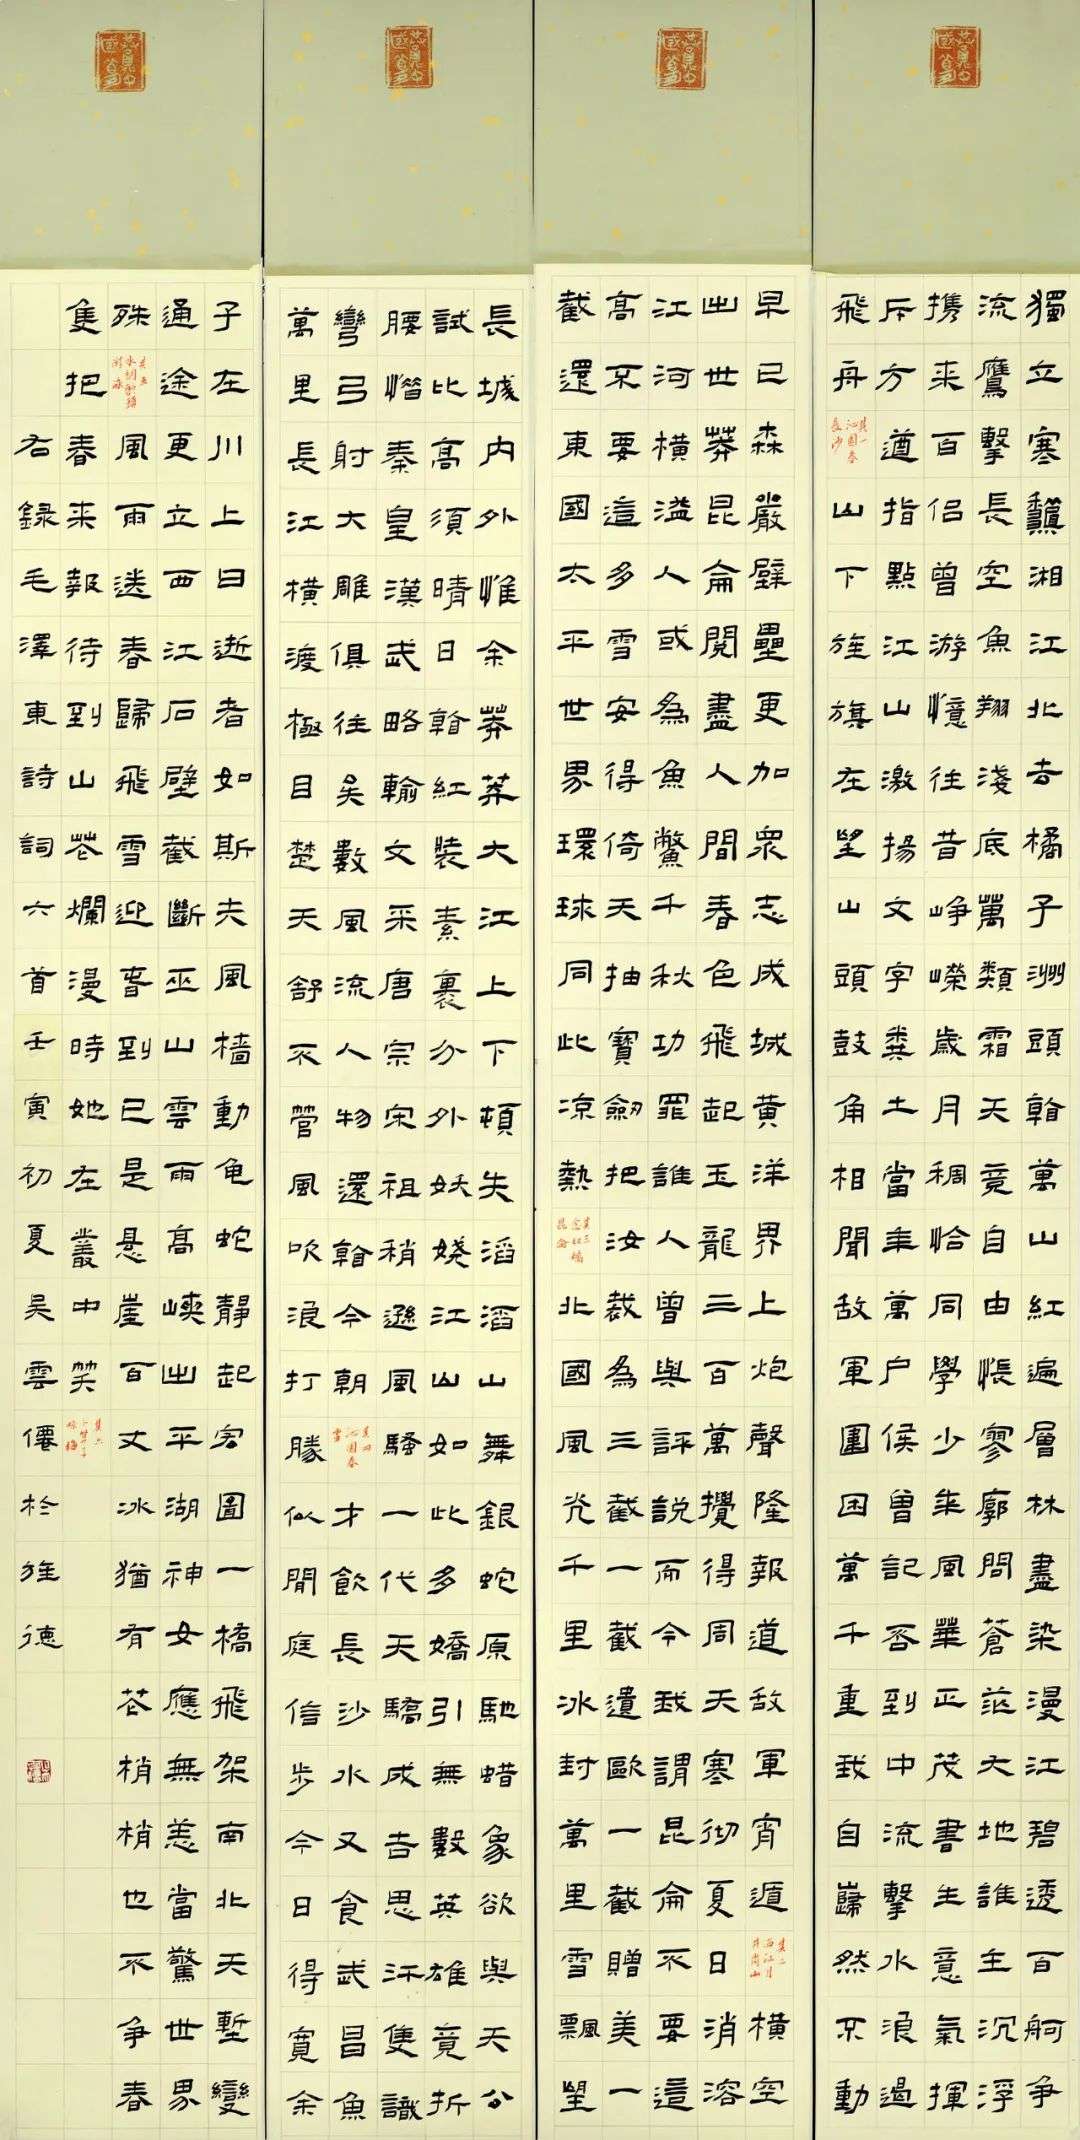 獨立寒龝湘江北去橘子洲頭看萬山紅遍層林盡染漫江碧透百舸爭
流鷹擊長空魚翔淺底萬類霜天競自由悵寥廓問蒼茫大地誰主沉浮
携来百侶曾游憶往昔崢嶸歲月稠恰同學少年風華正茂書生意氣揮
斥方遒指點江山激揚文字糞土當年萬户侯曾記否到中流擊水浪遏
飛舟 其一沁園春長沙 山下旌旗在望山頭鼓角相聞敵軍圍困萬千重我自巋然不動
早已森嚴壁壘更加衆志成城黄洋界上炮聲隆報道敵軍宵遁 其二西江月井岡山 橫空
出世莽昆侖閱盡人間春色飛起玉龍三百萬攪得周天寒徹夏日消溶
江河橫溢人或為魚鱉千秋功罪誰人曾與評說而今我謂昆侖不要這
高不要這多雪安得倚天抽寶劍把汝裁為三截一截遺歐一截贈美一
截還東國太平世界環球同此凉熱 其三念奴嬌昆侖 北國風光千里冰封萬里雪飄望
長城内外惟余莽莽大江上下頓失滔滔山舞銀蛇原馳蜡象欲與天公
試比高須晴日看紅裝素裹分外妖嬈江山如此多嬌引無數英雄竟折
腰惜秦皇漢武略輸文采唐宗宋祖稍遜風騷一代天驕成吉思汗隻識
彎弓射大雕俱往矣數風流人物還看今朝 其四沁園春雪 才飲長沙水又食武昌魚
萬里長江橫渡極目楚天舒不管風吹浪打勝似閒庭信步今日得寬余
子在川上曰逝者如斯夫風檣動龜蛇靜起宏圖一橋飛架南北天塹變
通途更立西江石壁截斷巫山雲雨高峽出平湖神女應無恙當驚世界
殊 其五水調歌頭游泳 風雨送春歸飛雪迎春到已是懸崖百丈冰猶有花梢梢也不爭春
隻把春来報待到山花爛漫時她在叢中笑 其六卜算子咏梅
右録毛澤東詩詞六首壬寅初夏吳雲僊於旌德